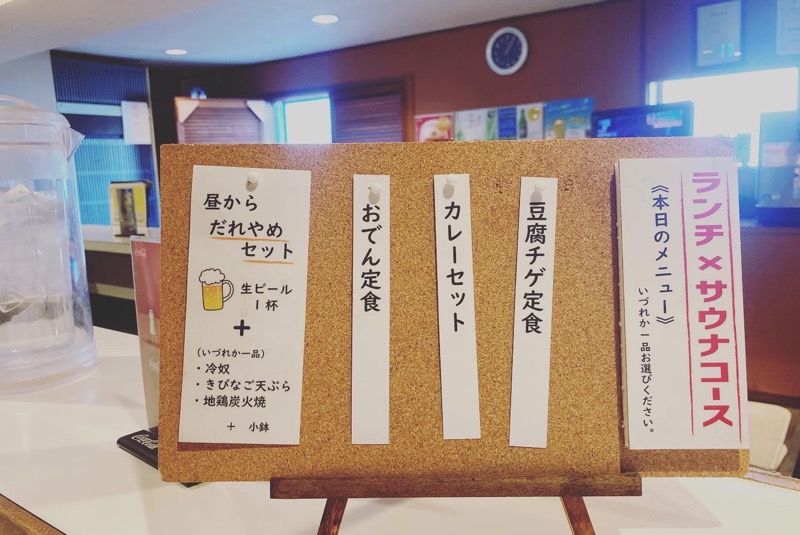 ランチ×サウナコース
《本日のメニュー》
いづれか一品お選びください。
豆腐チゲ定食
カレーセット
おでん定食
昼から
だれやめ
セット
生ビール
1杯
+
(いづれか一品)
・冷奴
・きびなご天ぷら
・地鶏炭火焼
+ 小鉢